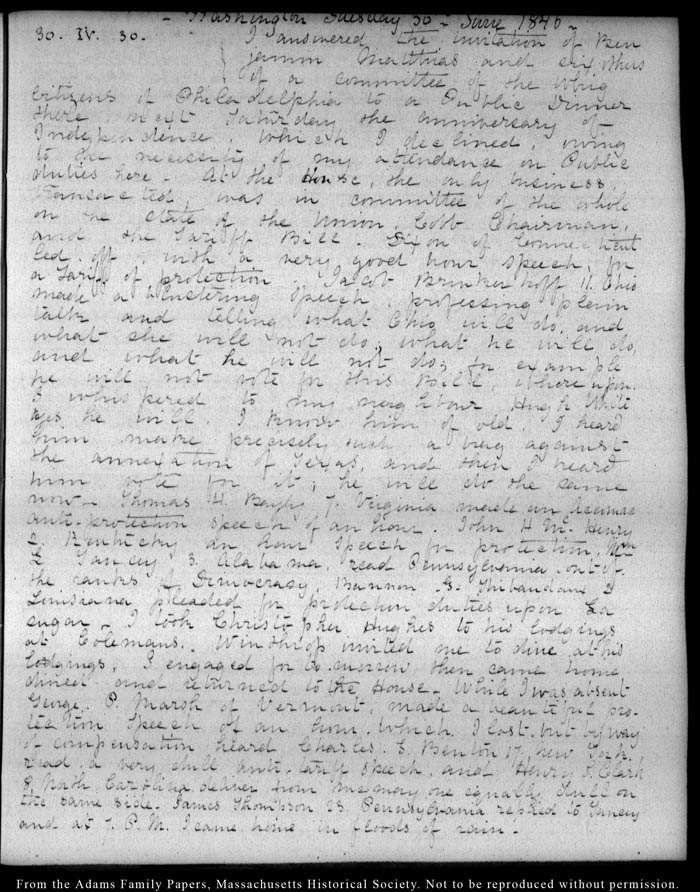 - Washington Tuesday 30 - June 1846 -
30. IV. 30. I answered the invitation of Ben
jamin Matthias and six others
of a committee of the Whig
Citizens of Philadelphia to a Public Dinner
there next Saturday the anniversary of
Independence which I declined, owing
to the necessity of my attendance on Public
duties here - At the House, the only business,
transacted, was in committee of the whole
on the state of the Union, Cobb Chairman,
and the Tariff Bill. Dixon of Connecticut
led off with a very good hour speech, for
a Tariff of protection. Jacob Brinkerhoff 11. Ohio
made a blustering speech, professing plain
talk and telling what Ohio will do, and
what she will not do, what he will do,
and what he will not do; for example
he will not vote for this Bill, whereupon
I whispered to my neighbour Hugh White
yes he will. I know him of old. I heard
him make precisely such a brag against
the annexation of Texas, and then I heard
him vote for it; he will do the same
now - Thomas H. Bayly 7. Virginia made an Accomac
anti-protection speech of an hour. John H McHenry
2. Kentucky an hour speech for protection. Wm
L Yancey 3. Alabama, read Pennsylvania out of
the ranks of Democracy, Bannon G. Thibaudeaux 2
Louisiana pleaded for protection duties upon La
sugar - I took Christopher Hughes to his lodgings
at Colemans. Winthrop invited me to dine at his
lodgings. I engaged for to-morrow then came home
dined and returned to the House - While I was absent
George P. Marsh of Vermont, made a beautiful pro-
tection speech of an hour, which I lost, but by way
of compensation heard Charles S. Benton 17. New York.
read a very dull anti-tariff speech, and Henry S. Clark
8 North Carolina deliver from memory one equally dull on
the same side - James Thompson 23. Pennsylvania replied to Yancey
and at 7. P.M. I came home in floods of rain -
From the Adams Family Papers, Massachusetts Historical Society. Not to be reproduced without permission.